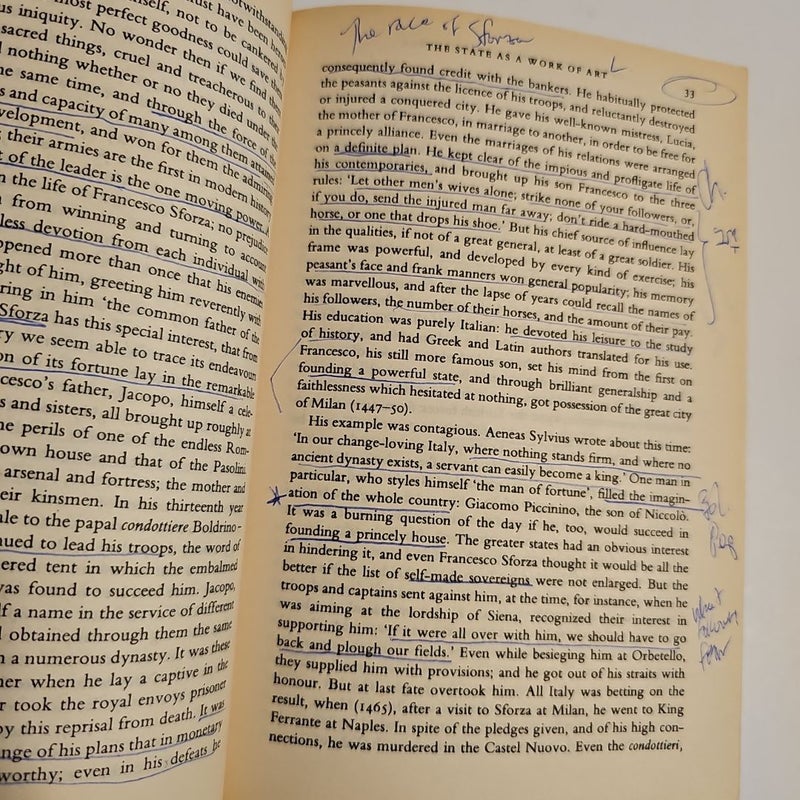 notwithstanding
must have been her
himself, not to be cankered by
most perfect goodness could save the
us iniquity. No wonder then if we find the
sacred things, cruel and treacherous to the
d nothing whether or no they died under the
he same time, and through the force of the
s and capacity of many among them attained
velopment, and won for them the admiring
; their armies are the first in modern history
t of the leader is the one moving power. A
n the life of Francesco Sforza; no prejudice
m from winning and turning to account
less devotion from each individual with
opened more than once that his enemies
ght of him, greeting him reverently with
ring in him 'the common father of the
Sforza has this special interest, that from
ry we seem able to trace its endeavours
on of its fortune lay in the remarkable
cesco's father, Jacopo, himself a cele-
s and sisters, all brought up roughly at
he perils of one of the endless Rom-
own house and that of the Pasolini
arsenal and fortress; the mother and
eir kinsmen. In his thirteenth year
ale to the papal condottiere Boldrino-
nued to lead his troops, the word of
ered tent in which the embalmed
was found to succeed him. Jacopo,
lf a name in the service of different
d obtained through them the same
n a numerous dynasty. It was these
her when he lay a captive in the
r took the royal envoys prisoner
by this reprisal from death. It was
nge of his plans that in monetary
worthy; even in his defeats he
The race of Sforza
THE STATE AS A WORK OF ART
33
consequently found credit with the bankers. He habitually protected
the peasants against the licence of his troops, and reluctantly destroyed
or injured a conquered city. He gave his well-known mistress, Lucia,
the mother of Francesco, in marriage to another, in order to be free for
a princely alliance. Even the marriages of his relations were arranged
on a definite plan. He kept clear of the impious and profligate life of
his contemporaries, and brought up his son Francesco to the three
rules: 'Let other men's wives alone; strike none of your followers, or,
if you do, send the injured man far away; don't ride a hard-mouthed
horse, or one that drops his shoe.' But his chief source of influence lay
in the qualities, if not of a great general, at least of a great soldier. His
frame was powerful, and developed by every kind of exercise; his
peasant's face and frank manners won general popularity; his memory
was marvellous, and after the lapse of years could recall the names of
his followers, the number of their horses, and the amount of their pay.
His education was purely Italian: he devoted his leisure to the study
of history, and had Greek and Latin authors translated for his use.
Francesco, his still more famous son, set his mind from the first on
founding a powerful state, and through brilliant generalship and a
faithlessness which hesitated at nothing, got possession of the great city
of Milan (1447–50).
His example was contagious. Aeneas Sylvius wrote about this time:
'In our change-loving Italy, where nothing stands firm, and where no
ancient dynasty exists, a servant can easily become a king.' One man in
particular, who styles himself 'the man of fortune', filled the imagin-
ation of the whole country: Giacomo Piccinino, the son of Niccolò.
It was a burning question of the day if he, too, would succeed in
founding a princely house. The greater states had an obvious interest
in hindering it, and even Francesco Sforza thought it would be all the
better if the list of self-made sovereigns were not enlarged. But the
troops and captains sent against him, at the time, for instance, when he
was aiming at the lordship of Siena, recognized their interest in
supporting him: 'If it were all over with him, we should have to go
back and plough our fields.' Even while besieging him at Orbetello,
they supplied him with provisions; and he got out of his straits with
honour. But at last fate overtook him. All Italy was betting on the
result, when (1465), after a visit to Sforza at Milan, he went to King
Ferrante at Naples. In spite of the pledges given, and of his high con-
nections, he was murdered in the Castel Nuovo. Even the condottieri,